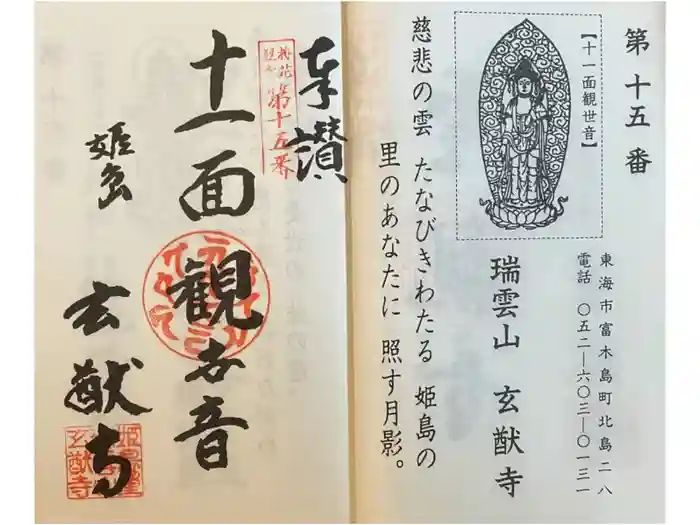 第十五番
【十一面観世音】
東海市富木島町北島二八
電話 〇五二―六〇三―〇一三一
瑞雲山 玄猷寺
慈悲の雲 たなびきわたる 姫島の
里のあなたに 照す月影。
奉讃
第十五番
十一面観世音
姫島
玄猷寺
玄猷寺